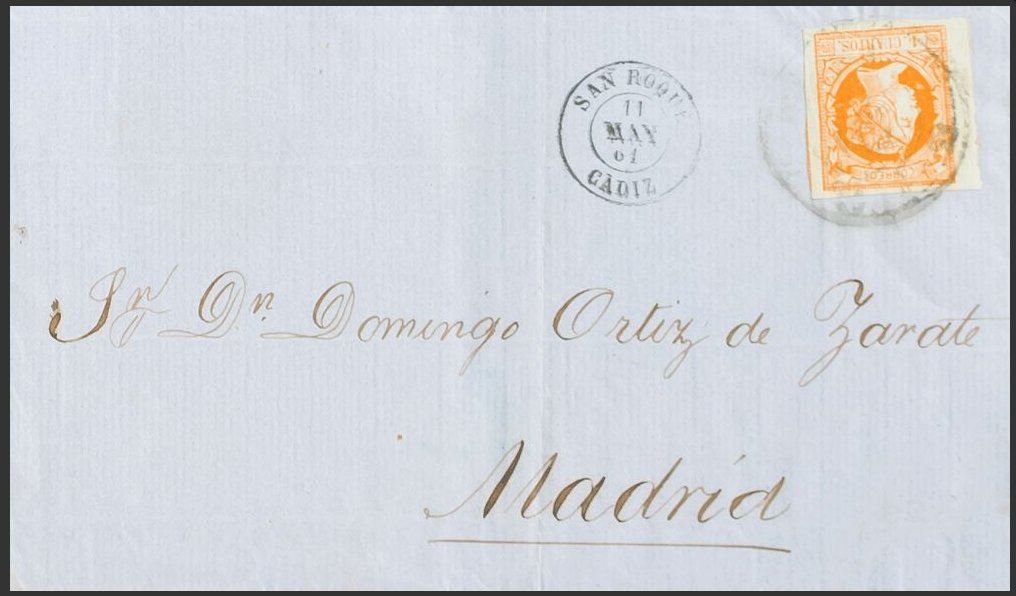 SAN ROQUE
11
MAY
61
CADIZ
4 CUARTOS.
CORREOS
Sr. Dn. Domingo Ortiz de Zarate
Madrid